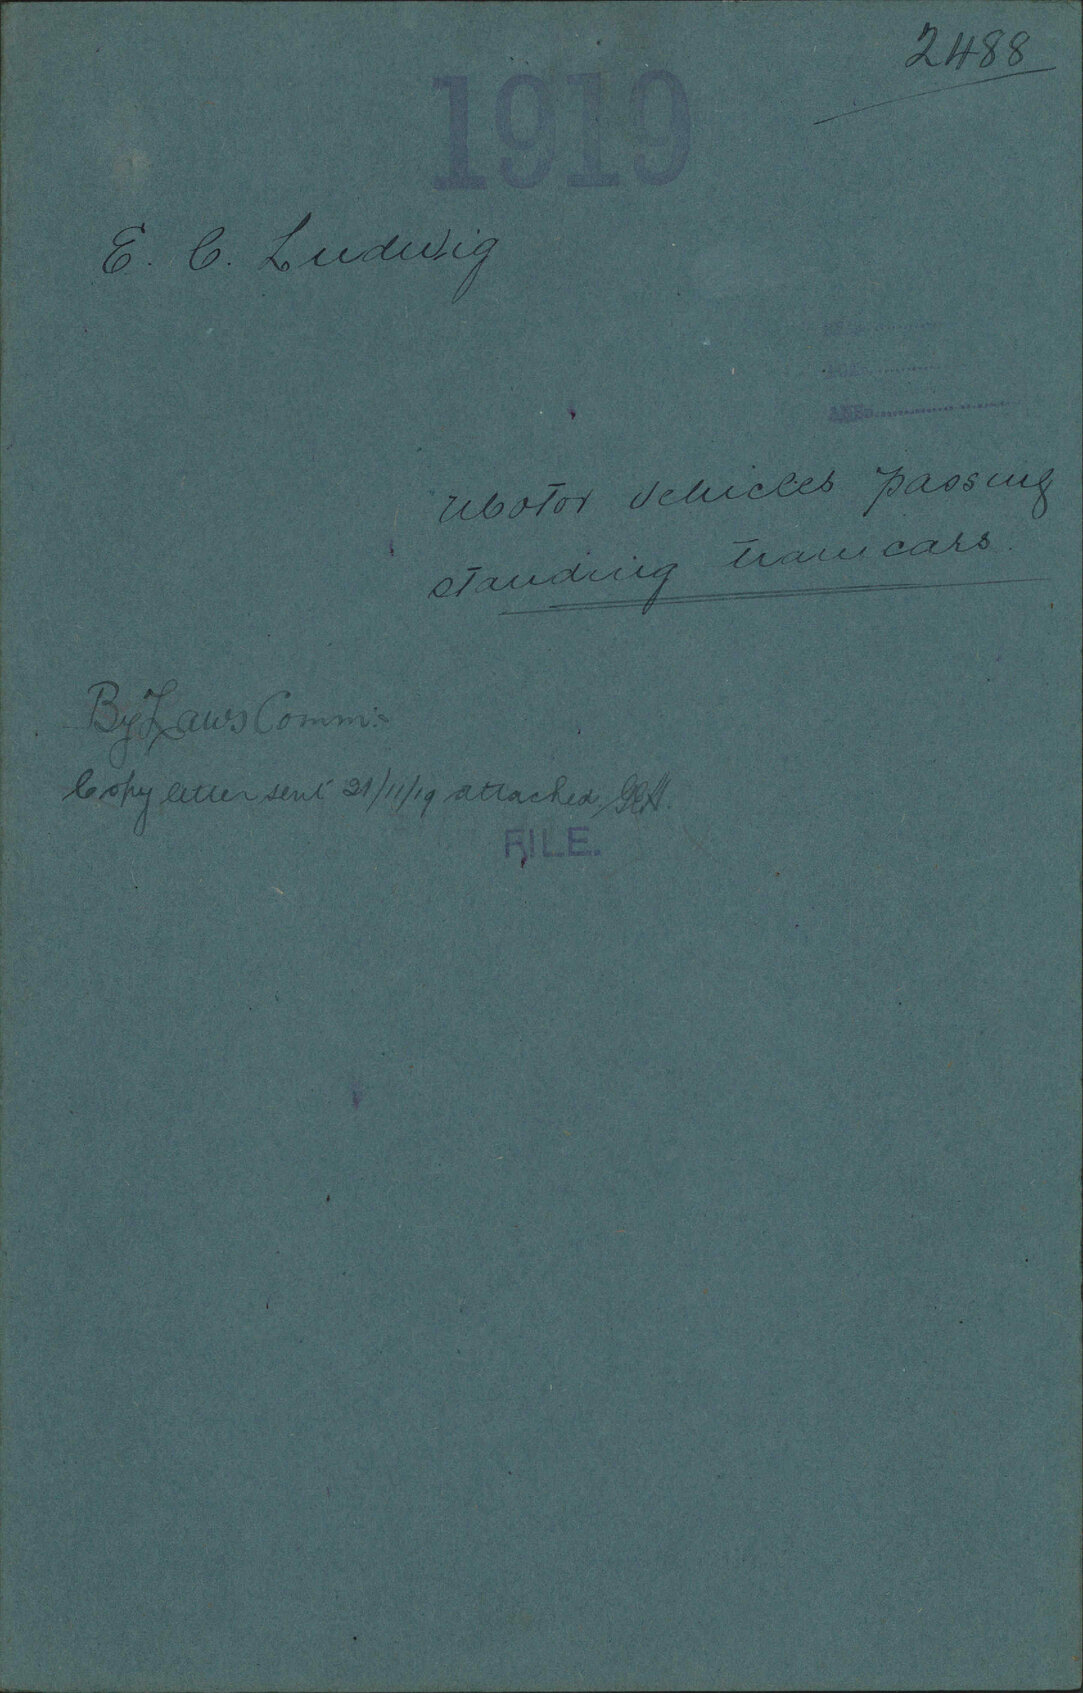 2488
1919
E. C. Ludwig
Motor Vehicles passing
standing tramcars.
By Laws Comm:
Copy letter sent 21/11/19 attached
FILE.